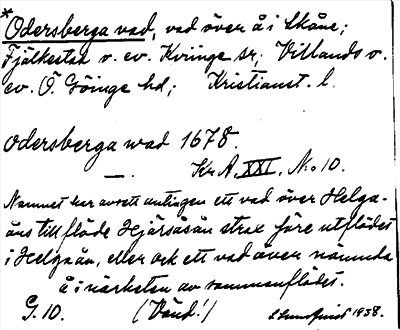 * Odersberga vad, vad över å i Skåne;
Fjälkestad v. ev. Kviinge sr; Villands v.
ev. Ö. Göinge hd; Kristianst. l.
Odersberga wad 1678.
—. Kr A. XXI. N:o 10.
Namnet har avsett antingen ett vad över Helge-
åns tillflöde Hjärsåsån strax före utflödet
i Helgeån, eller ock ett vad över nämnda
å i närheten av sammanflödet.
G. 10. (Vänd!) 1938.